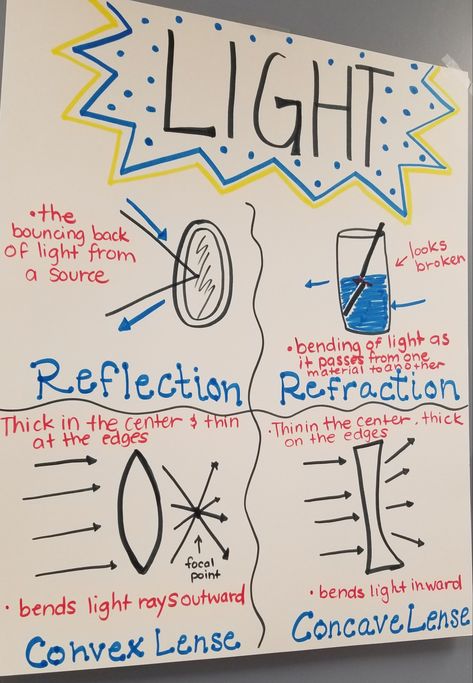 LIGHT
•the
bouncing back
of light from
a source
looks
broken
•bending of light as
it passes from one
material to another
Reflection
Refraction
Thick in the center & thin
at the edges
•Thin in the center, thick
on the edges
focal
point
•bends light rays outward
•bends light inward
Convex Lense
Concave Lense